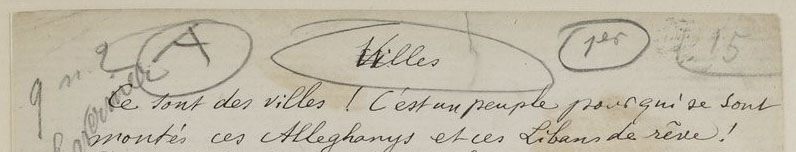 A Villes 1er 15
9 n. 2
Ce sont des villes ! C'est un peuple pour qui se sont
montés ces Alleghanys et ces Libans de rêve !